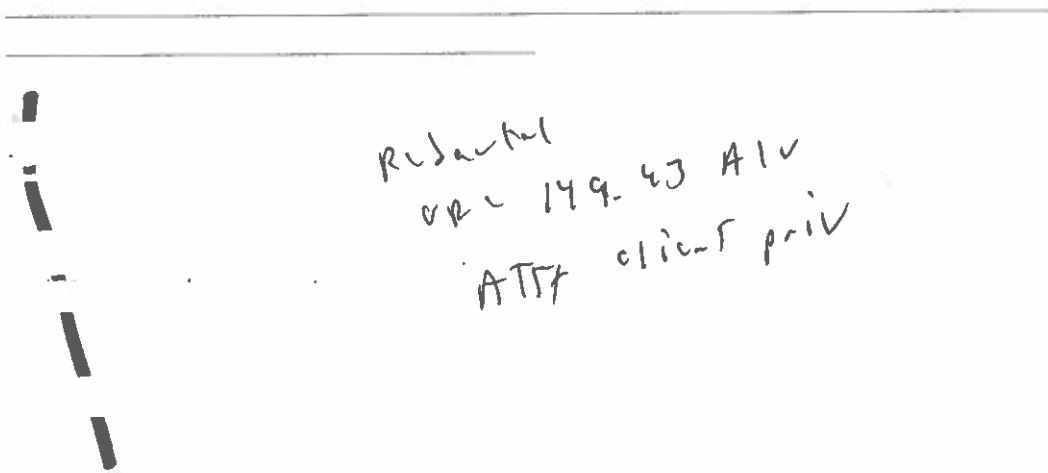 Redacted
ORC 149.43 A1v
ATTY client priv